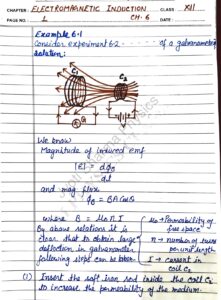 CHAPTER: ELECTROMAGNETIC INDUCTION CLASS XII
PAGE NO. 1 CH. 6
Example 6.1
Consider experiment 6.2 of a galvanometer
Solution:
C1 C2
G
We know
Magnitude of induced emf
|E| = dφB
dt
and mag flux
φB = BA cosθ
where B = μ0 n I
By above relations it is
clear that to obtain large
deflection in galvanometer
following steps can be taken
μ0 → Permeability of
free space
n → number of turns
per unit length
I → current in
coil C2
(1) Insert the soft iron rod inside the coil C2
to increase the permeability of the medium.